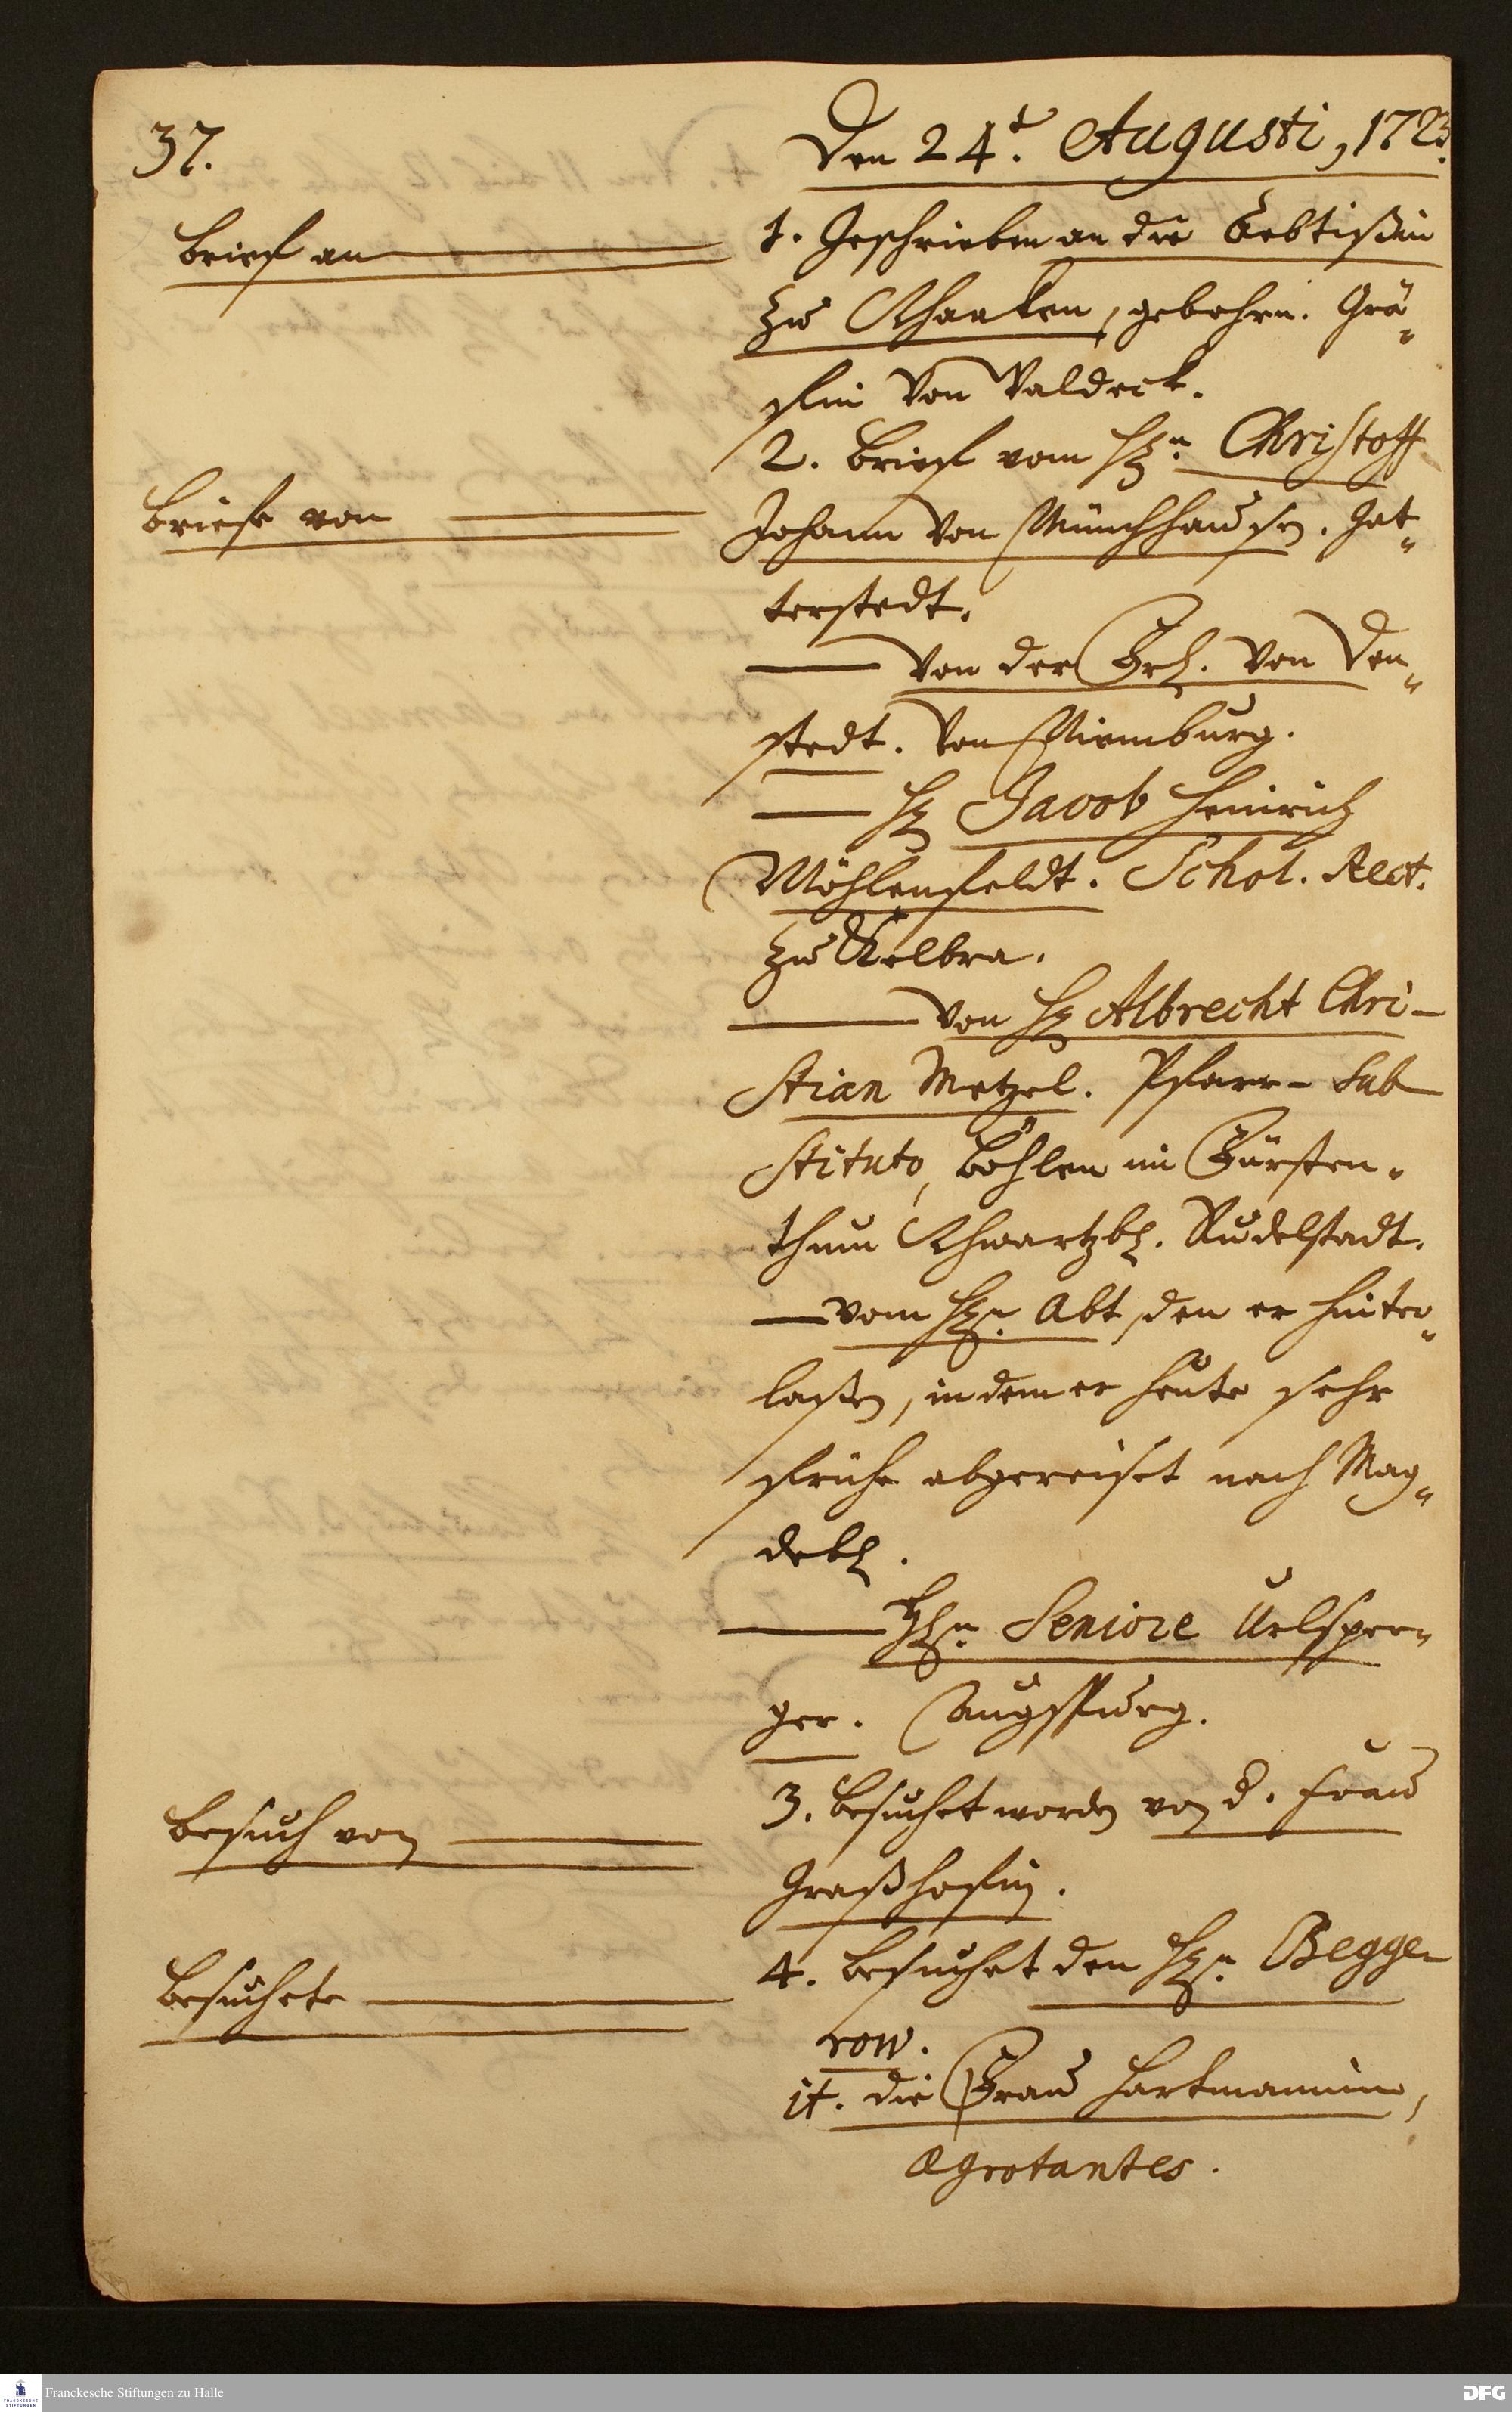 37.
Den 24.t Augusti, 1723.
Brief an
1. Geschrieben an die Aebtißin
zu Schaaken, gebohrn. Grä„
fin von Waldeck.
2. Brief vom Hrn. Christoff
Briefe von
Johann von Münchhausen. Gat„
terstedt.
von der Frl. von Den„
stedt. von Nienburg.
H Jacob Heinrich
Möhlenfeldt. Schol. Rect.
zu Kelbra.
von H Albrecht Chri-
stian Metzel. Pfarr-Sub
stituto, Böhlen im Fürsten„
thum Schwartzb. Rudelstadt.
vom Hrn. Abt, den er hinter„
laßen, indem er heute sehr
frühe abgereiset nach Mag„
deb.
Hrn. Seniore Urlsper„
ger. Augspurg.
3. Besuchet worden von d. Frau
Besuch von
Graßhofin.
4. Besuchet den Hrn. Begge-
Besuchete
row.
it. die Frau Hartmannin,
ægrotantes.
Franckesche Stiftungen zu Halle
DFG